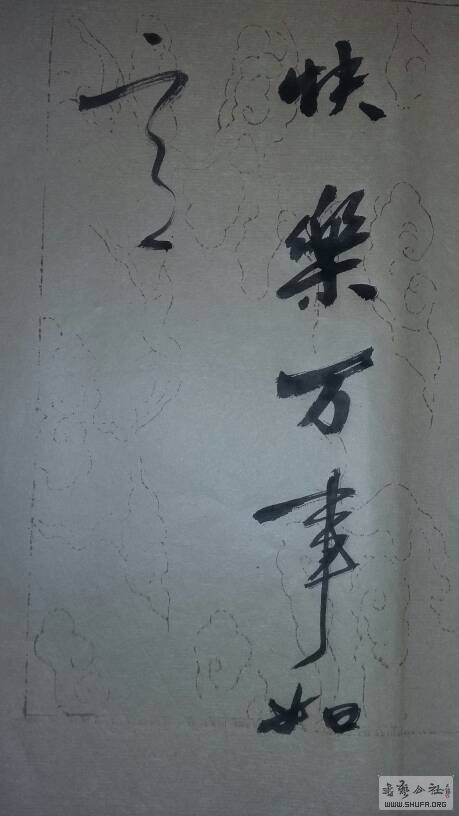 快樂万事如
意
书艺公社
WWW.SHUFA.ORG